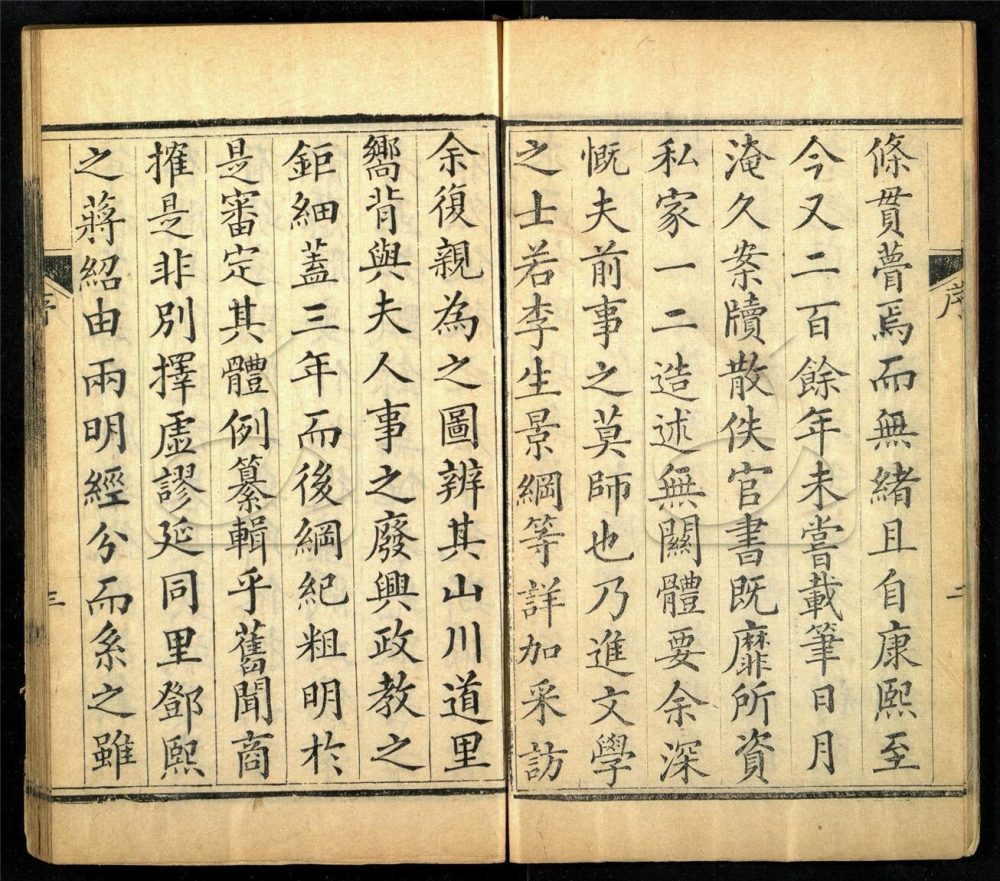 條貫瞢焉而無緒且自康熙至
今又二百餘年未嘗載筆日月
淹久案牘散佚官書既靡所資
私家一二造述無關體要余深
慨夫前事之莫師也乃進文學
之士若李生景綱等詳加采訪
余復親為之圖辨其山川道里
嚮背與夫人事之廢興政教之
鉅細蓋三年而後綱紀粗明於
是審定其體例纂輯乎舊聞商
搉是非別擇虛謬延同里鄧熙
之蔣紹由兩明經分而系之雖
序
三